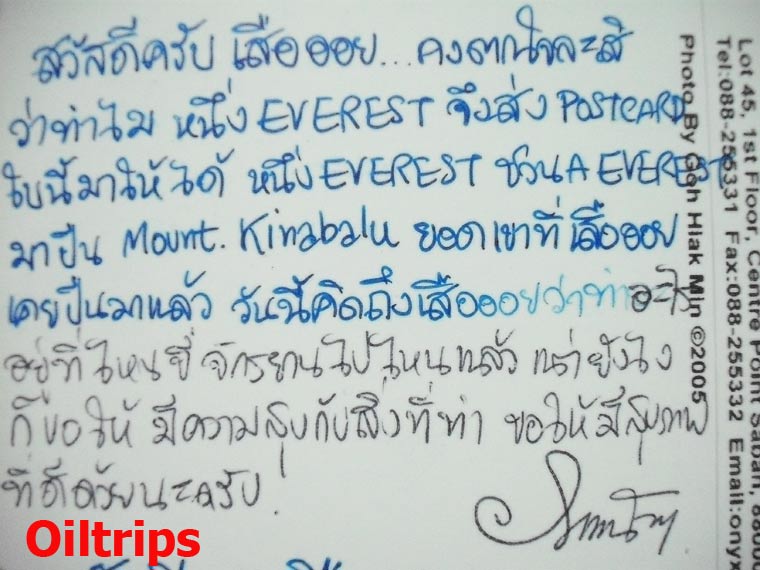 สวัสดีครับ เสือออย... คงตกใจละสิ
ว่าทำไม หนึ่ง EVEREST จึงส่ง POSTCARD
ใบนี้มาให้ได้ หนึ่ง EVEREST ชวน A EVEREST
มาปีน Mount. Kinabalu ยอดเขาที่ เสือออย
เคยปีนมาแล้ว วันนี้คิดถึงเสือออยว่าทำอะไร
อยู่ที่ไหน ขี่จักรยานไปไหนแล้ว แต่ยังไง
ก็ขอให้ มีความสุขกับสิ่งที่ทำ ขอให้มีสุขภาพ
ที่ดีด้วยนะครับ.
Oiltrips
Photo By Goh Hiak Min ©2005
Lot 45, 1st Floor, Centre Point Sabah, 88000
Tel:088-255331 Fax:088-255332 Email:onyx